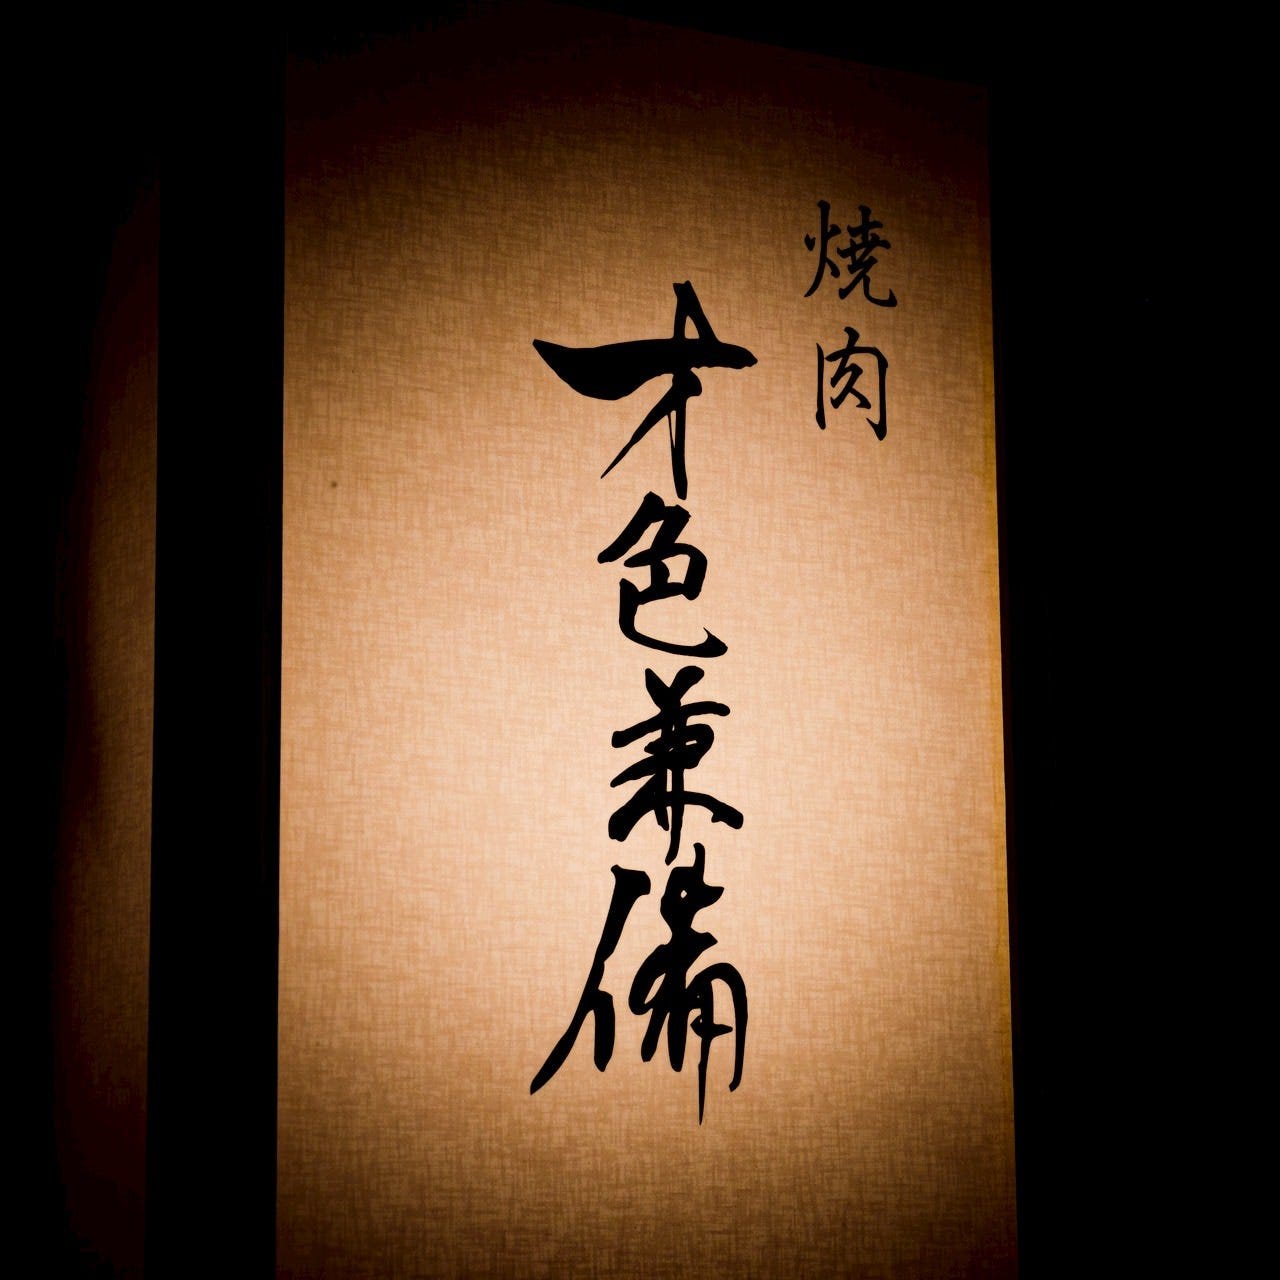 焼肉
才色兼備